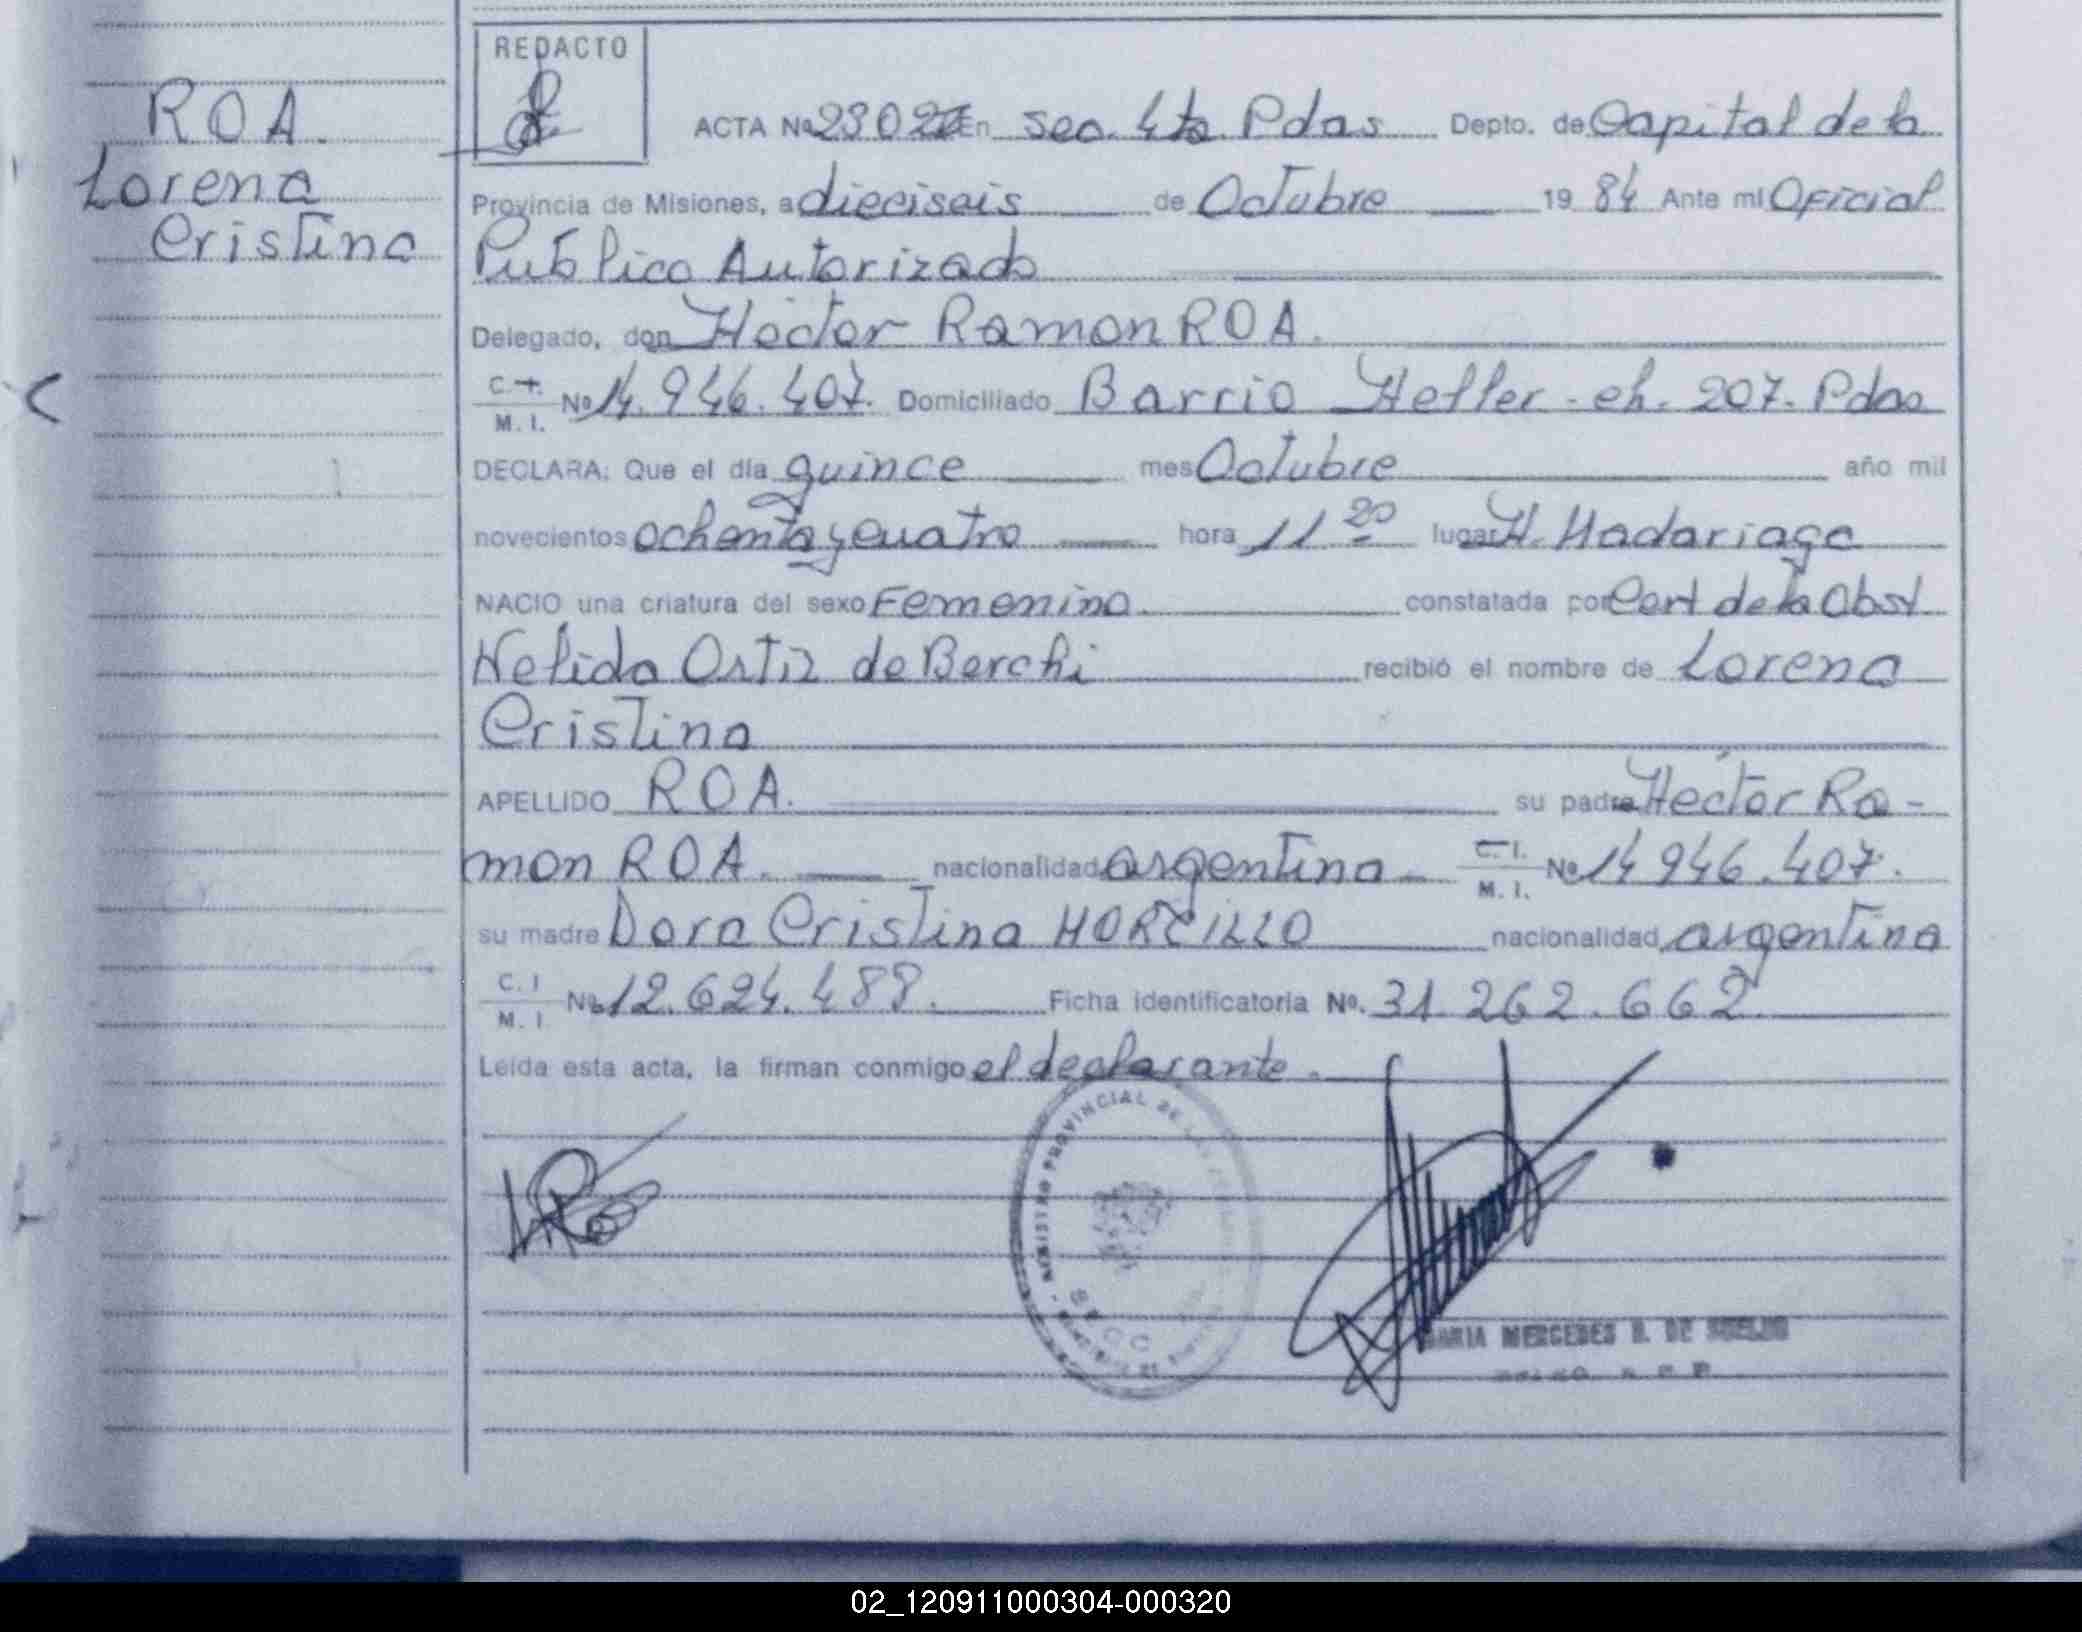 REDACTO
ROA.
Lorena
Cristina
ACTA No 2302 En sec. 4ta Pdas Depto. de Capital de la
Provincia de Misiones, a dieciseis de Octubre 19 84 Ante mi Oficial
Publico Autorizado
Delegado, don Hector Ramon ROA.
C.I. M.I. No 14.946.407. Domiciliado Barrio Heller - ch. 207. Pdas
DECLARA: Que el día quince mes Octubre año mil
novecientos ochenta y cuatro hora 11 20 lugar H. Madariaga
NACIO una criatura del sexo Femenino. constatada por Cert de la Obst
Nelida Ortiz de Berchi recibió el nombre de Lorena
Cristina
APELLIDO ROA. su padre Hector Ra-
mon ROA. nacionalidad argentina C.I. M.I. No 14 946.407.
su madre Dora Cristina MORCILLO nacionalidad argentina
C.I M.I No 12.624.488. Ficha identificatoria No. 31.262.662.
Leída esta acta, la firman conmigo el declarante.
PROVINCIAL DE LAS
MARIA MERCEDES DE
02_120911000304-000320